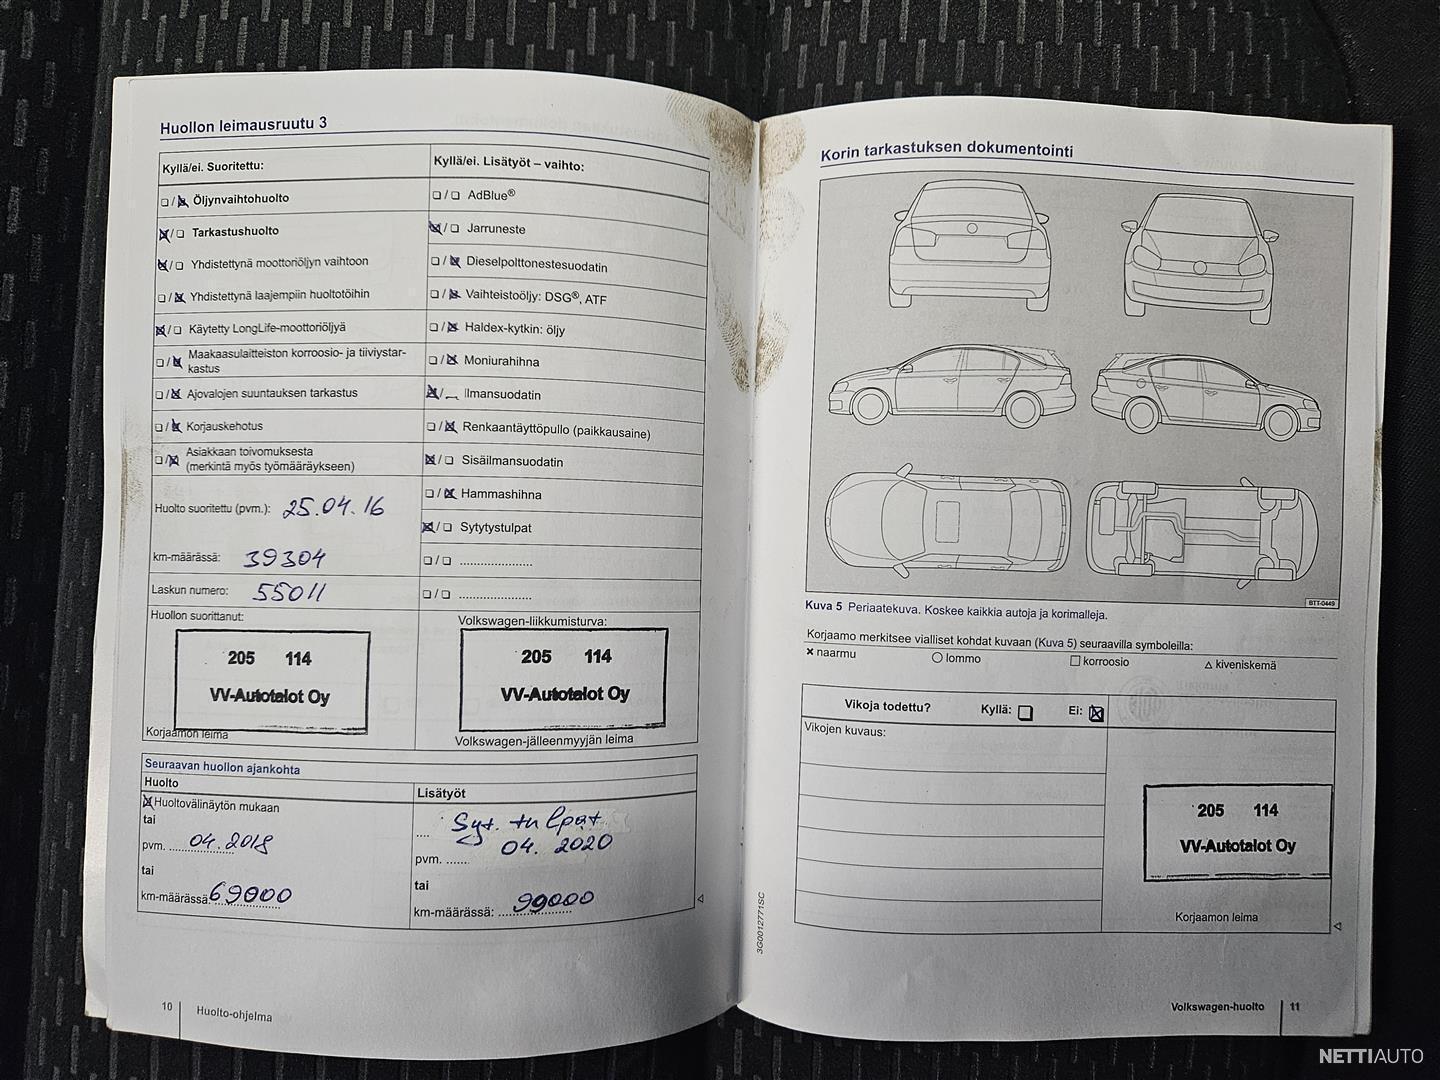 Huollon leimausruutu 3
Kyllä/ei. Suoritettu:
Öljynvaihtohuolto
Tarkastushuolto
Yhdistettynä moottoriöljyn vaihtoon
Yhdistettynä laajempiin huoltotöihin
Käytetty LongLife-moottoriöljyä
Maakaasulaitteiston korroosio- ja tiiviystar-
kastus
Ajovalojen suuntauksen tarkastus
Korjauskehotus
Asiakkaan toivomuksesta
(merkintä myös työmääräykseen)
Huolto suoritettu (pvm.): 25.04.16
km-määrässä: 39304
Laskun numero: 55011
Huollon suorittanut:
205 114
VV-Autotalot Oy
Korjaamon leima
Kyllä/ei. Lisätyöt – vaihto:
AdBlue®
Jarruneste
Dieselpolttonestesuodatin
Vaihteistoöljy: DSG®, ATF
Haldex-kytkin: öljy
Moniurahihna
Ilmansuodatin
Renkaantäyttöpullo (paikkausaine)
Sisäilmansuodatin
Hammashihna
Sytytystulpat
Volkswagen-liikkumisturva:
205 114
VV-Autotalot Oy
Volkswagen-jälleenmyyjän leima
Seuraavan huollon ajankohta
Huolto
Huoltovälinäytön mukaan
tai
pvm. 04.2018
tai
km-määrässä: 69000
Lisätyöt
Syt. tulpat
pvm. 04. 2020
tai
km-määrässä: 99000
10 Huolto-ohjelma
Korin tarkastuksen dokumentointi
BTT-0449
Kuva 5 Periaatekuva. Koskee kaikkia autoja ja korimalleja.
Korjaamo merkitsee vialliset kohdat kuvaan (Kuva 5) seuraavilla symboleilla:
naarmu lommo korroosio kiveniskemä
Vikoja todettu? Kyllä: Ei:
Vikojen kuvaus:
205 114
VV-Autotalot Oy
Korjaamon leima
3G0012771SC
Volkswagen-huolto 11
NETTIAUTO